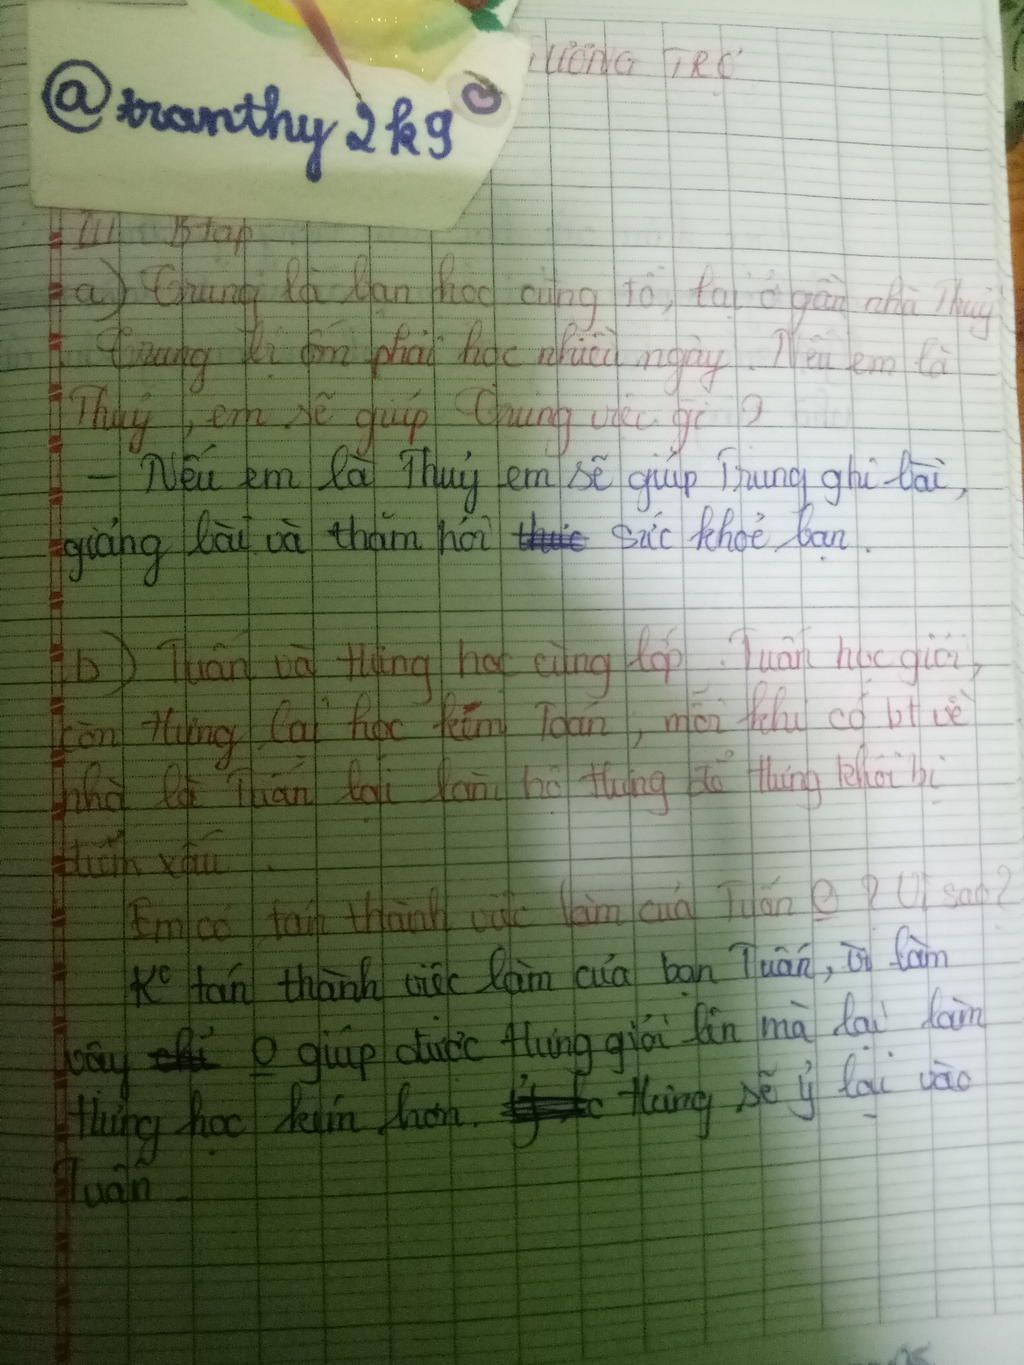 @tranthy2k9
TƯƠNG TRỢ
III B tập
a) Trung là bạn học cùng tổ, lại ở gần nhà Thuỷ
Trung bị ốm phải học nhiều ngày. Nếu em là
Thuỷ, em sẽ giúp Trung việc gì?
- Nếu em là Thuỷ em sẽ giúp Trung ghi bài,
giảng bài và thăm hỏi sức khoẻ bạn.
b) Tuấn và Hưng học cùng lớp. Tuấn học giỏi,
còn Hưng lại học kém Toán, mỗi khi có bt về
nhà là Tuấn lại làm hộ Hưng để Hưng khỏi bị
điểm xấu.
Em có tán thành việc làm của Tuấn 0? Vì sao?
K0 tán thành việc làm của bạn Tuấn, vì làm
vậy 0 giúp được Hưng giỏi lên mà lại làm
Hưng học kém hơn. Hưng sẽ ỷ lại vào
Tuấn